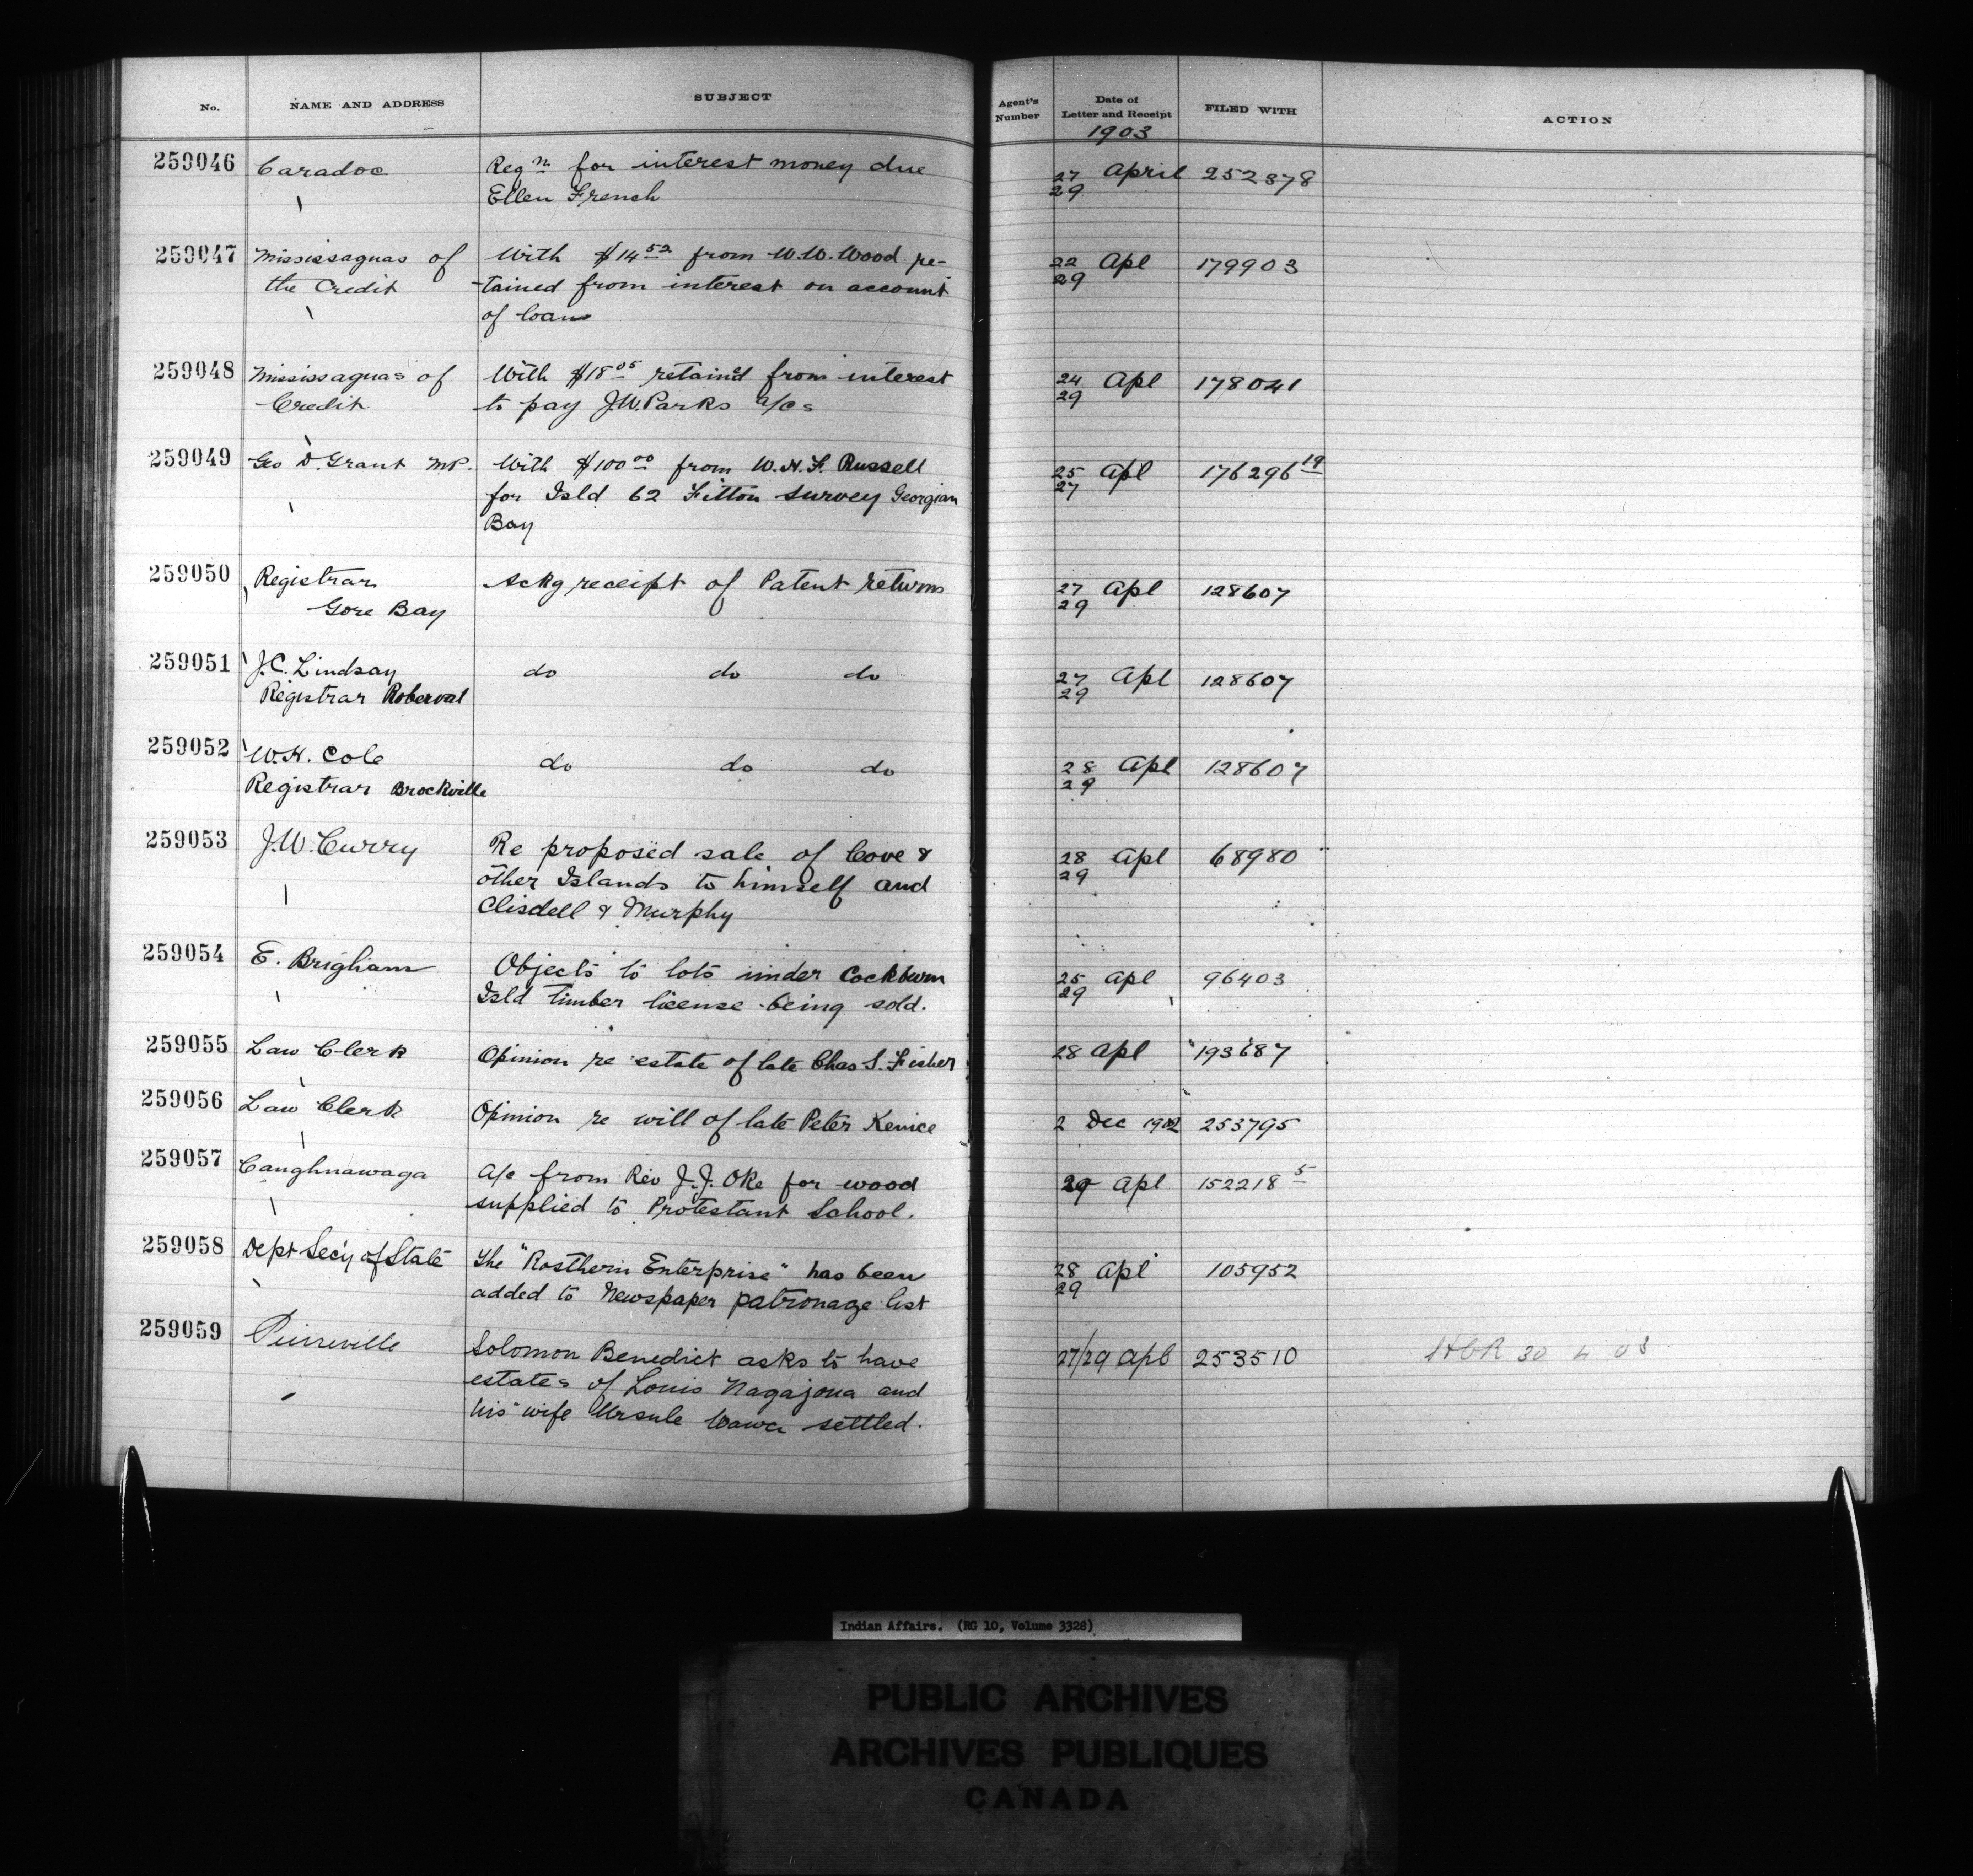 No. NAME AND ADDRESS SUBJECT Agent's Number Date of Letter and Receipt FILED WITH ACTION
1903
259046 Caradoc Reqn for interest money due 27 April 252878
Ellen French 29
259047 Mississaguas of With $14 52 from W.W. Wood re- 22 Apl 179903
the Credit -tained from interest on account 29
of loan
259048 Mississaguas of With $18 05 retain'd from interest 24 Apl 178041
Credit to pay J.W. Parks a/cs 29
259049 Geo D. Grant MP. With $100 00 from W.H.F. Russell 25 Apl 176296 19
for Isld 62 Fitton survey Georgian 27
Bay
259050 Registrar Ackg receipt of Patent returns 27 Apl 128607
Gore Bay 29
259051 J.C. Lindsay do do do 27 Apl 128607
Registrar Roberval 29
259052 W.H. Cole do do do 28 Apl 128607
Registrar Brockville 29
259053 J.W. Curry Re proposed sale of Cove & 28 Apl 68980
other Islands to himself and 29
Clisdell & Murphy
259054 E. Brigham Objects to lots under Cockburn 25 Apl 96403
Isld timber license being sold. 29
259055 Law Clerk Opinion re estate of late Chas S. Fisher 28 Apl 193687
259056 Law Clerk Opinion re will of late Peter Kenice 2 Dec 1902 253795
259057 Caughnawaga A/c from Rev J.J. Oke for wood 29 Apl 152218 5
supplied to Protestant School.
259058 Dept Secy of State The "Rosthern Enterprise" has been 28 Apl 105952
added to Newspaper patronage list 29
259059 Pierreville Solomon Benedict asks to have 27/29 Apl 253510 30 4 03
estates of Louis Nagajoua and
his wife Ursule Wawa settled.
Indian Affairs. (RG 10, Volume 3328)
PUBLIC ARCHIVES
ARCHIVES PUBLIQUES
CANADA